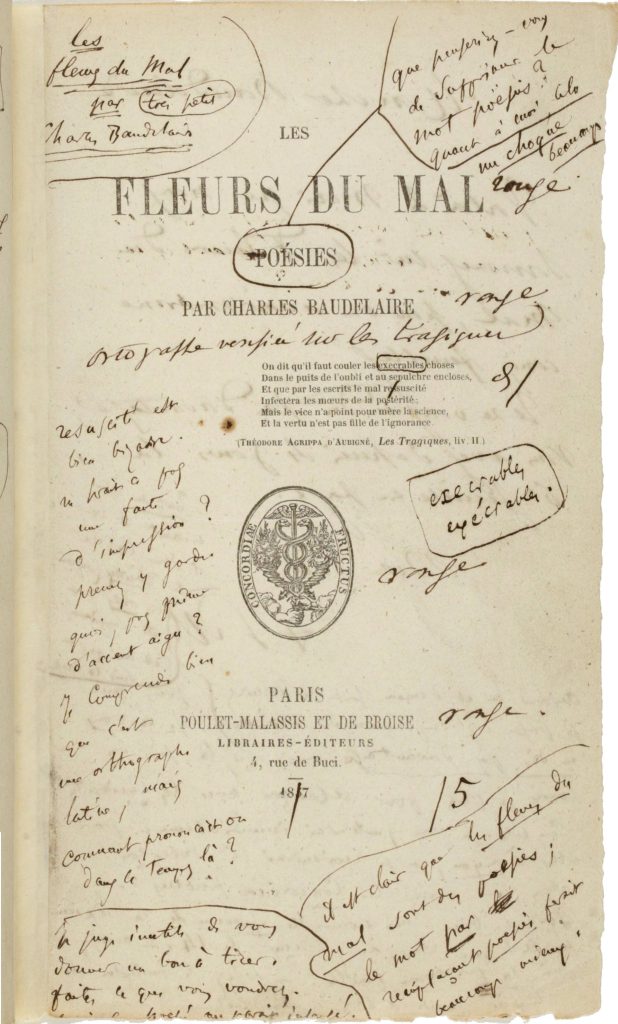 les
fleurs du Mal
par très petit
Charles Baudelaire
que penseriez-vous
de supprimer le
mot poësies?
quant à moi cela
me choque
beaucoup
LES
FLEURS DU MAL
rouge.
POÉSIES
PAR CHARLES BAUDELAIRE
rouge
ortografe versifié sur les tragiques
On dit qu'il faut couler les execrables choses
Dans le puits de l'oubli et au sepulchre encloses,
Et que par les escrits le mal ressuscité
Infectera les mœurs de la postérité;
Mais le vice n'a point pour mère la science,
Et la vertu n'est pas fille de l'ignorance.
(THÉODORE AGRIPPA D'AUBIGNÉ, Les Tragiques, liv. II)
resuscité est
bien bizarre.
n'y aurait-il pas
une faute
d'impression?
prenez y garde
quoi, pas même
d'accent aigu?
Je comprends bien
que c'est
une orthographe
latine, mais
comment prononçait-on
dans le temps là?
execrables
exécrables.
CONCORDIAE FRUCTUS
rouge
PARIS
POULET-MALASSIS ET DE BROISE
LIBRAIRES-ÉDITEURS
4, rue de Buci.
rouge.
1857
/5
il est clair que les fleurs du
mal sont des poësies;
le mot par
remplaçant poësies ferait
beaucoup mieux.
Je juge inutile de vous
donner un bon à tirer.
faites ce que vous voudrez.